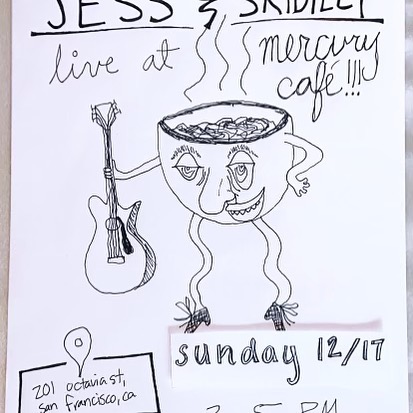 JESS &
live at mercury
café!!!
sunday 12/17
201 octavia st,
san francisco, ca
PM